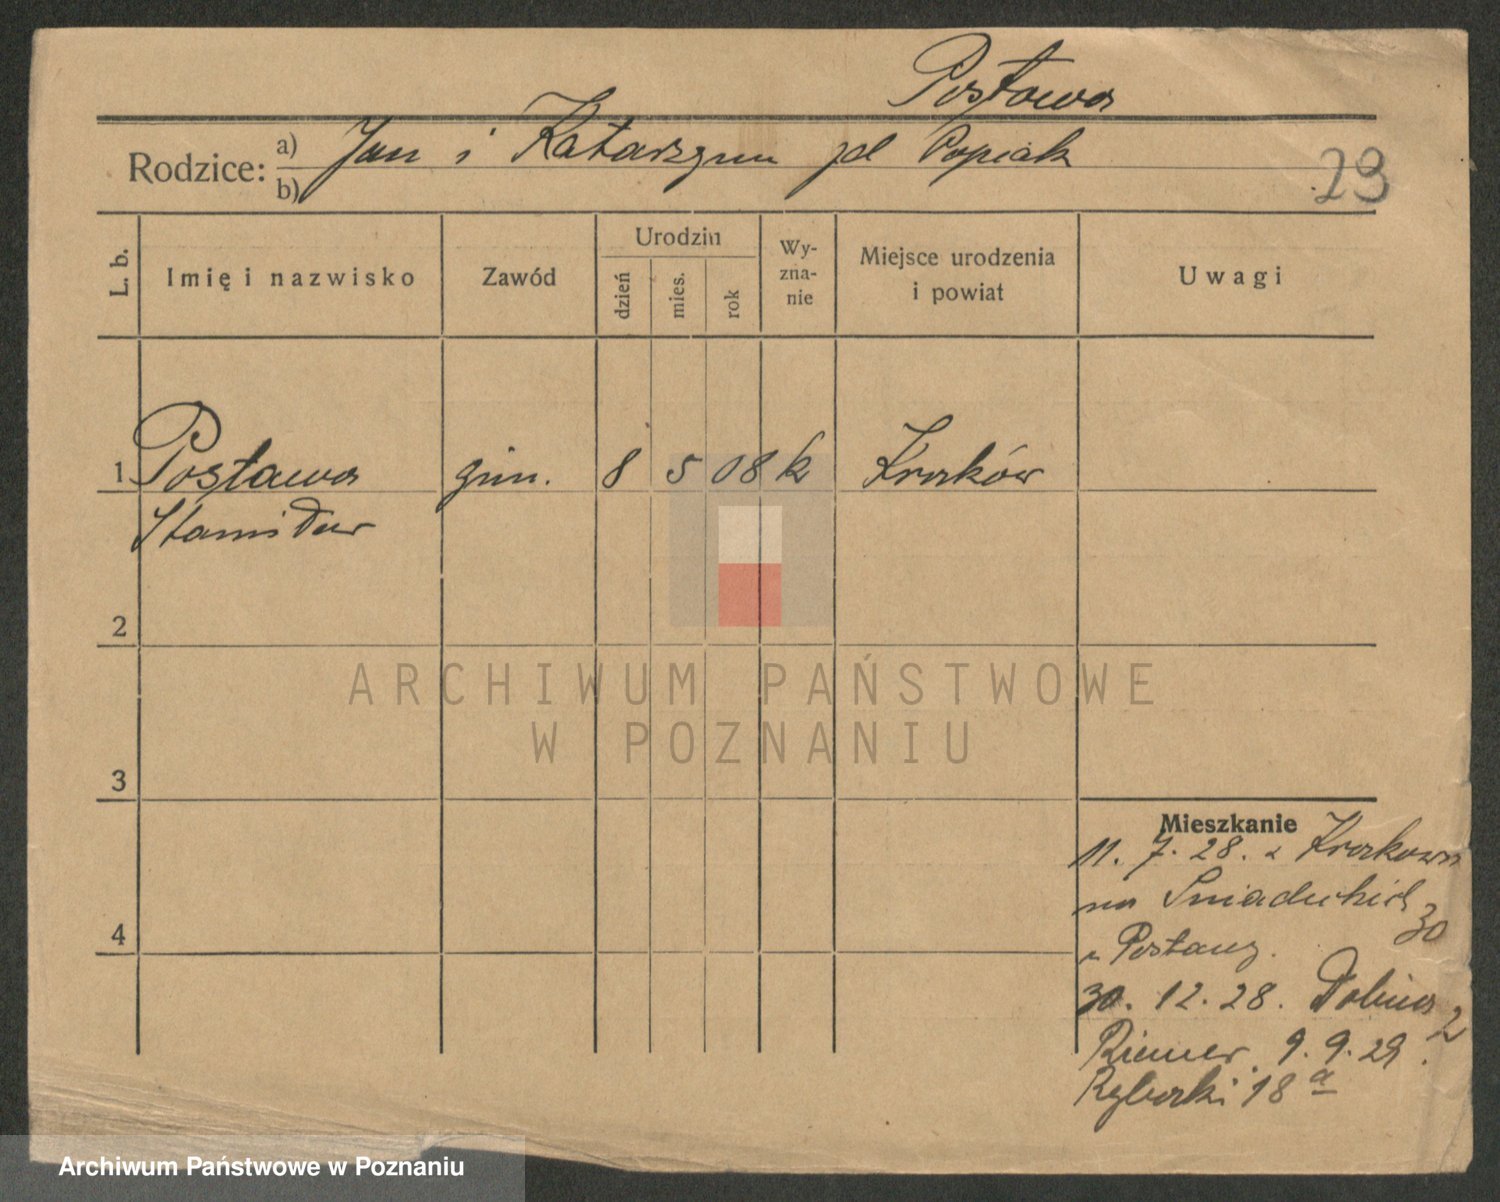 Postawa
Rodzice: a) Jan i Katarzyna zd Popiak
b)
29
L. b.
Imię i nazwisko
Zawód
Urodzin
dzień
mies.
rok
Wy-
zna-
nie
Miejsce urodzenia
i powiat
Uwagi
1 Postawa gim. 8 5 08 k Kraków
Stanisław
2
3
4
ARCHIWUM PAŃSTWOWE
W POZNANIU
Mieszkanie
11. 7. 28. z Krakowa
na Śniadeckich 30
30. 12. 28. Dolina 2
9. 9. 29.
Rybaki 18a
Archiwum Państwowe w Poznaniu